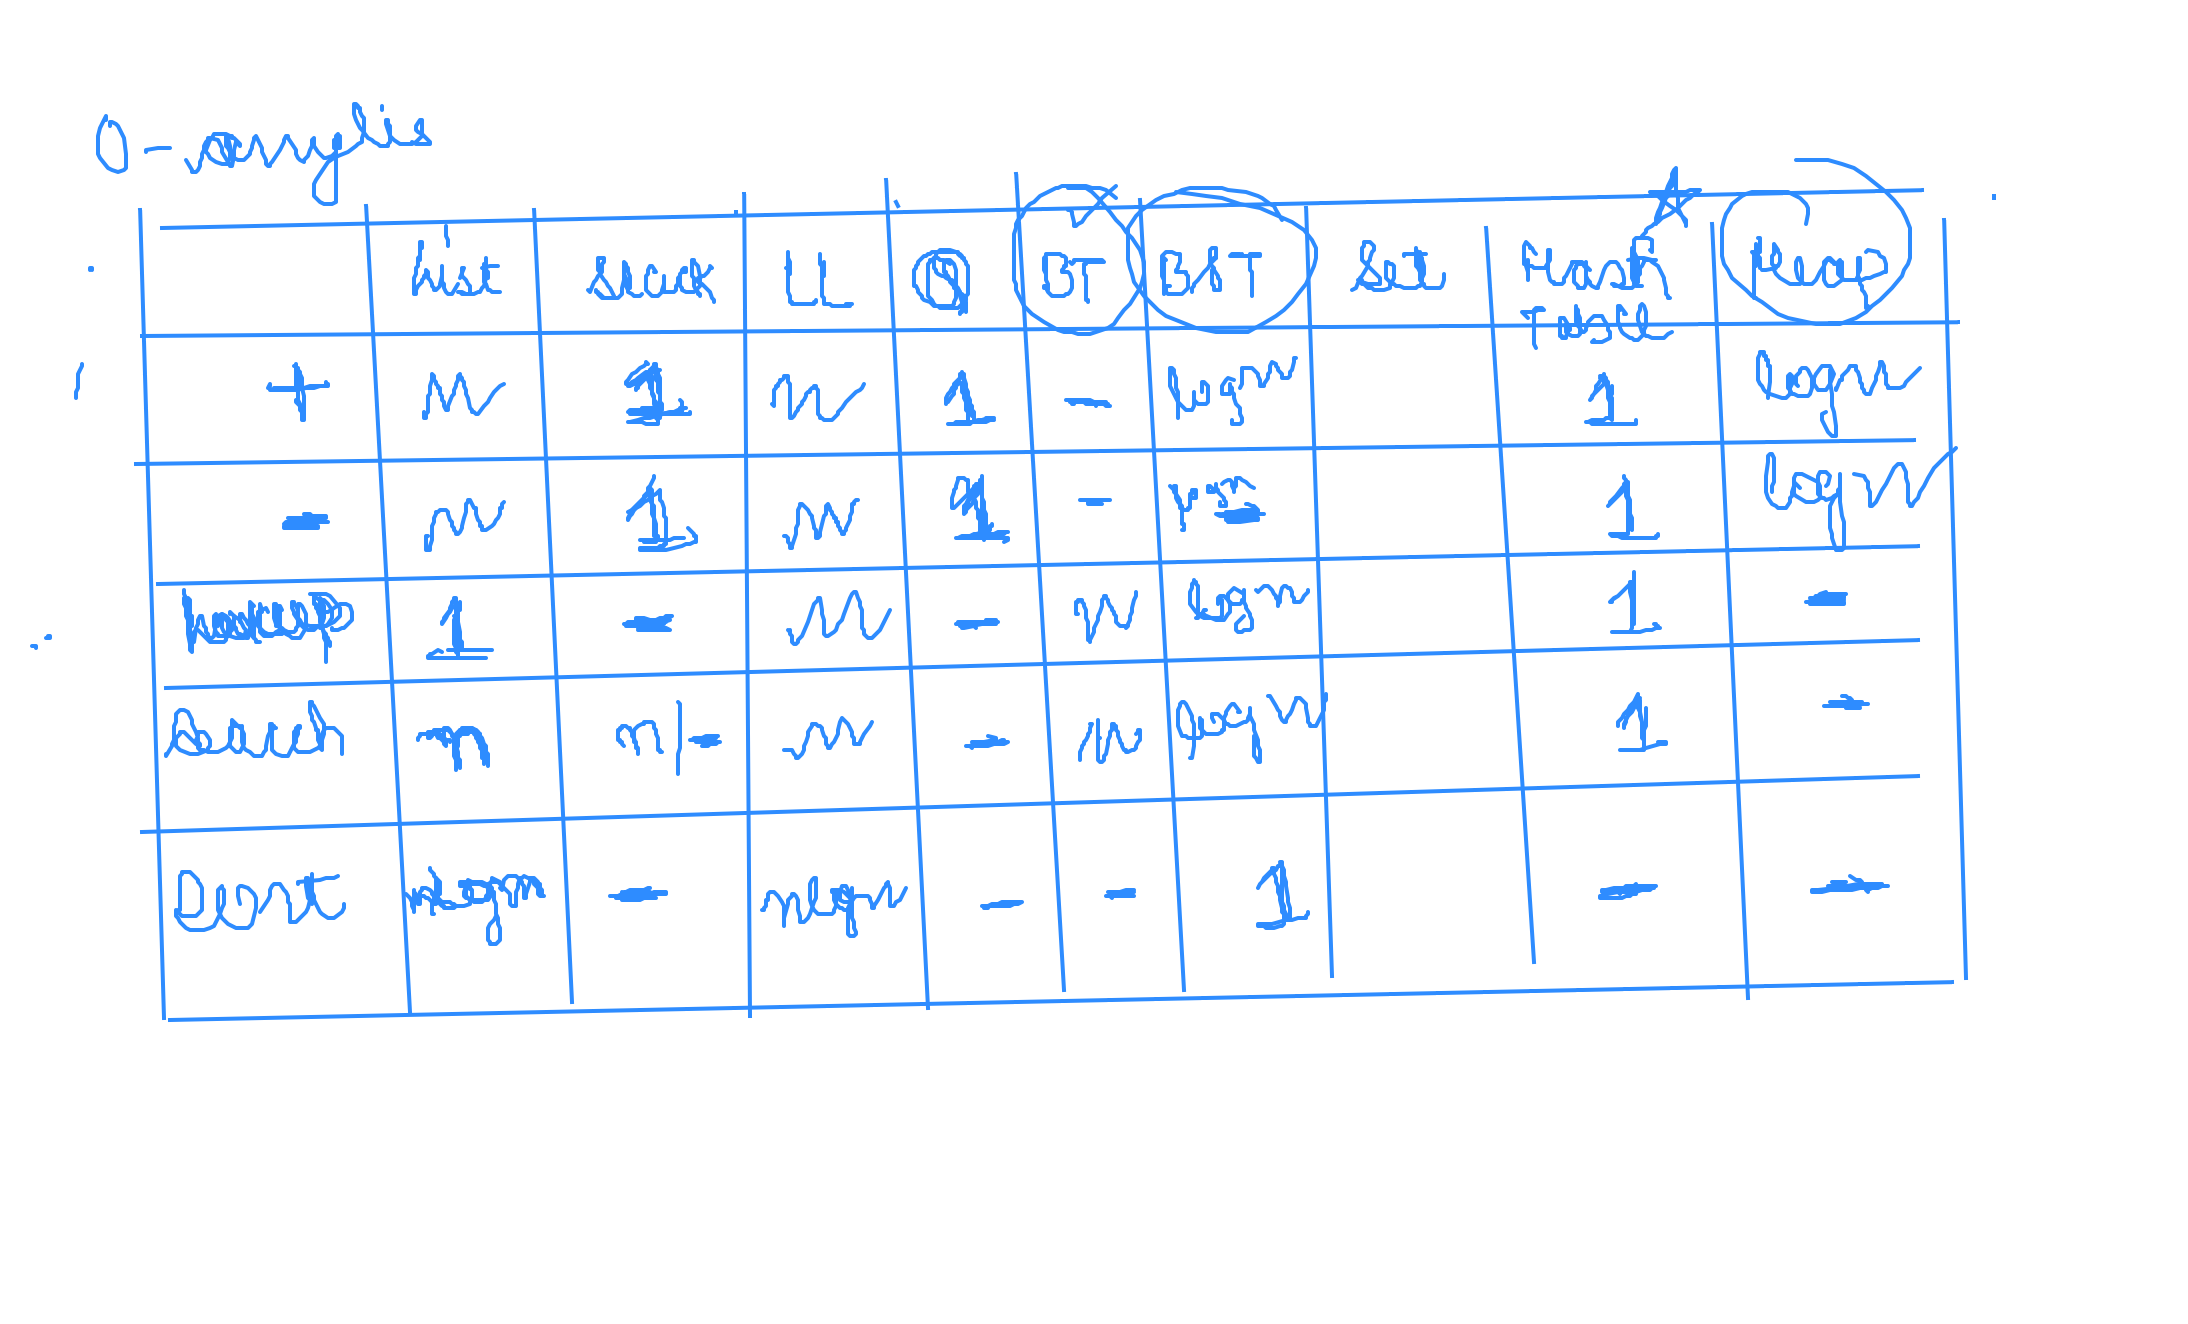 O-anylis
List Stack LL Q BT BST Set Hash Table Heap
+ n 1 n 1 - logn 1 logn
- n 1 n 1 - - 1 logn
lookup 1 - n - n logn 1 -
Search n n|- n - n logn 1 -
Sort nlogn - nlgn - - 1 - -